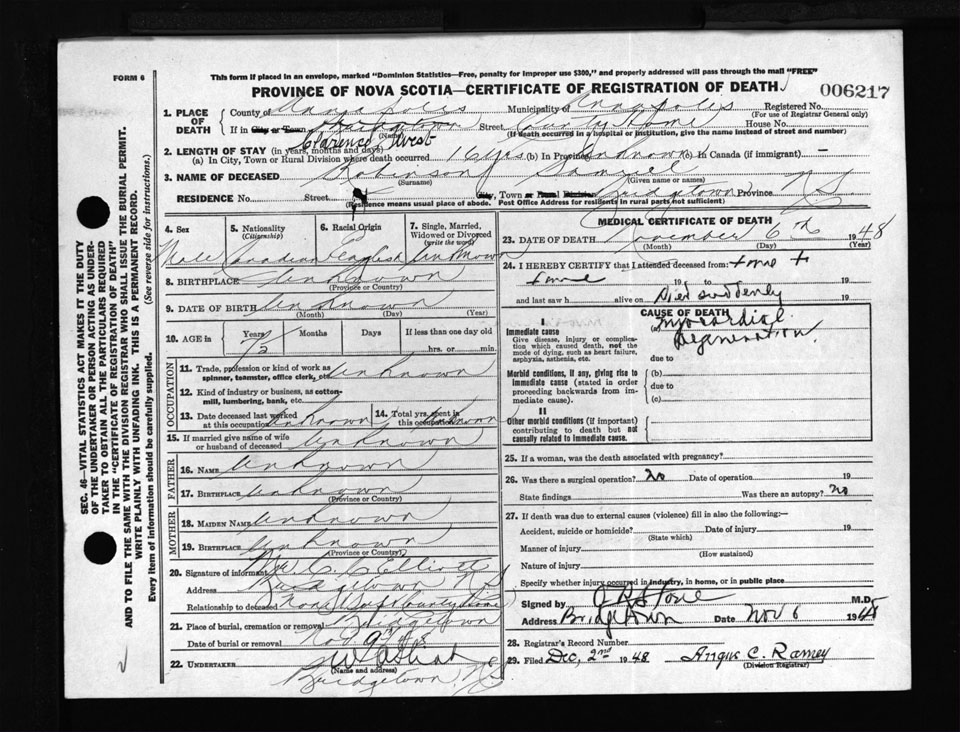 FORM 6
This form if placed in an envelope, marked "Dominion Statistics—Free, penalty for improper use $300," and properly addressed will pass through the mail "FREE"
PROVINCE OF NOVA SCOTIA—CERTIFICATE OF REGISTRATION OF DEATH
006217
1. PLACE OF DEATH
County of Annapolis Municipality of Annapolis Registered No.
(For use of Registrar General only)
If in City or Town Bridgetown Street County Home House No.
(Name) (If death occurred in a hospital or institution, give the name instead of street and number)
Clarence West
2. LENGTH OF STAY (in years, months and days)
(a) In City, Town or Rural Division where death occurred 16 yrs (b) In Province Unknown (c) In Canada (if immigrant) —
3. NAME OF DECEASED Robinson Samuel
(Surname) (Given name or names)
RESIDENCE No. Street City, Town or Rural Division Bridgetown Province N.S.
(Residence means usual place of abode. Post Office Address for residents in rural parts not sufficient)
4. Sex 5. Nationality 6. Racial Origin 7. Single, Married, Widowed or Divorced
(Citizenship) (write the word)
Male Canadian English Unknown
8. BIRTHPLACE Unknown
(Province or Country)
9. DATE OF BIRTH Unknown
(Month) (Day) (Year)
10. AGE in Years Months Days If less than one day old
73 hrs. or min.
OCCUPATION
11. Trade, profession or kind of work as spinner, teamster, office clerk, etc. Unknown
12. Kind of industry or business, as cotton-mill, lumbering, bank, etc.
13. Date deceased last worked at this occupation Unknown 14. Total yrs. spent in this occupation Unknown
15. If married give name of wife or husband of deceased Unknown
FATHER
16. NAME Unknown
17. BIRTHPLACE Unknown
(Province or Country)
MOTHER
18. MAIDEN NAME Unknown
19. BIRTHPLACE Unknown
(Province or Country)
20. Signature of informant C. C. Elliott
Address Bridgetown N.S.
Relationship to deceased None Supt County Home
21. Place of burial, cremation or removal Bridgetown
Date of burial or removal Nov. 9 - 48
22. UNDERTAKER
(Name and address)
Bridgetown, N.S.
MEDICAL CERTIFICATE OF DEATH
23. DATE OF DEATH November 6th 1948
(Month) (Day) (Year)
24. I HEREBY CERTIFY that I attended deceased from time to
time 19 19
and last saw h alive on Died suddenly 19
CAUSE OF DEATH
I
Immediate cause
Give disease, injury or complication which caused death, not the mode of dying, such as heart failure, asphyxia, asthenia, etc.
(a) Myocardial Degeneration
due to
Morbid conditions, if any, giving rise to immediate cause (stated in order proceeding backwards from immediate cause).
(b)
due to
(c)
II
Other morbid conditions (if important) contributing to death but not causally related to immediate cause.
25. If a woman, was the death associated with pregnancy?
26. Was there a surgical operation? No Date of operation 19
State findings Was there an autopsy? No
27. If death was due to external causes (violence) fill in also the following:—
Accident, suicide or homicide? Date of injury 19
(State which)
Manner of injury
(How sustained)
Nature of injury
Specify whether injury occurred in industry, in home, or in public place
Signed by M.D.
Address Bridgetown Date Nov 6 1948
28. Registrar's Record Number
29. Filed Dec, 2nd 1948 Angus C. Ramey
(Division Registrar)
SEC. 46—VITAL STATISTICS ACT MAKES IT THE DUTY
OF THE UNDERTAKER OR PERSON ACTING AS UNDER-
TAKER TO OBTAIN ALL THE PARTICULARS REQUIRED
IN THE "CERTIFICATE OF REGISTRATION OF DEATH"
AND TO FILE THE SAME WITH THE DIVISION REGISTRAR WHO SHALL ISSUE THE BURIAL PERMIT.
WRITE PLAINLY WITH UNFADING INK. THIS IS A PERMANENT RECORD.
Every item of information should be carefully supplied. (See reverse side for instructions.)